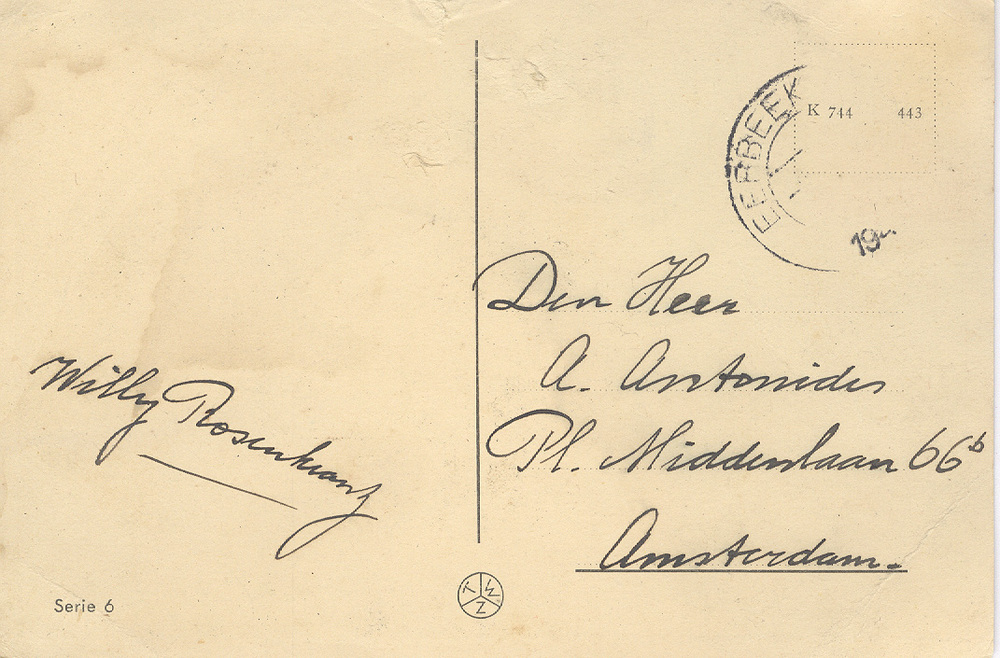 EERBEEK
K 744 443
19
Den Heer
A. Antonides
Pl. Middenlaan 66b
Amsterdam.
Willy Rosenkranz
Serie 6
T W Z